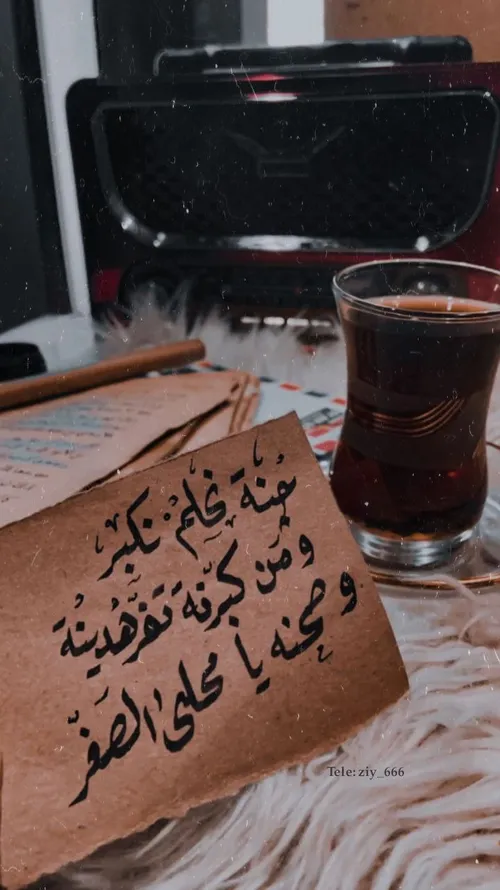 چنة نحلم نكبر
ومن كبرنة تفرهدينة
وصحنه يا محلى الصغر
Tele: ziy_666